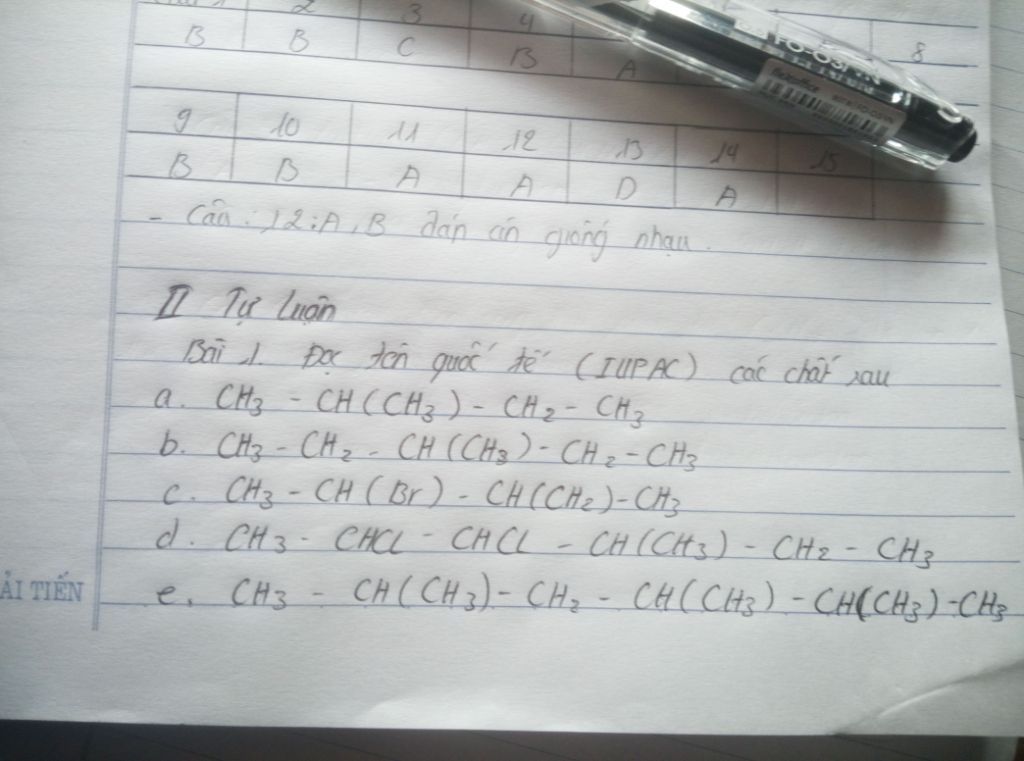 2 3 4
B B C B A 8
9 10 11 12 13 14 15
B B A A D A
- Câu 12: A, B đáp án giống nhau.
II Tự luận
Bài 1. Đọc tên quốc tế (IUPAC) các chất sau
a. CH₃ - CH(CH₃) - CH₂ - CH₃
b. CH₃ - CH₂ - CH(CH₃) - CH₂ - CH₃
c. CH₃ - CH(Br) - CH(CH₂) - CH₃
d. CH₃ - CHCl - CHCl - CH(CH₃) - CH₂ - CH₃
ẢI TIẾN
e. CH₃ - CH(CH₃) - CH₂ - CH(CH₃) - CH(CH₃) - CH₃